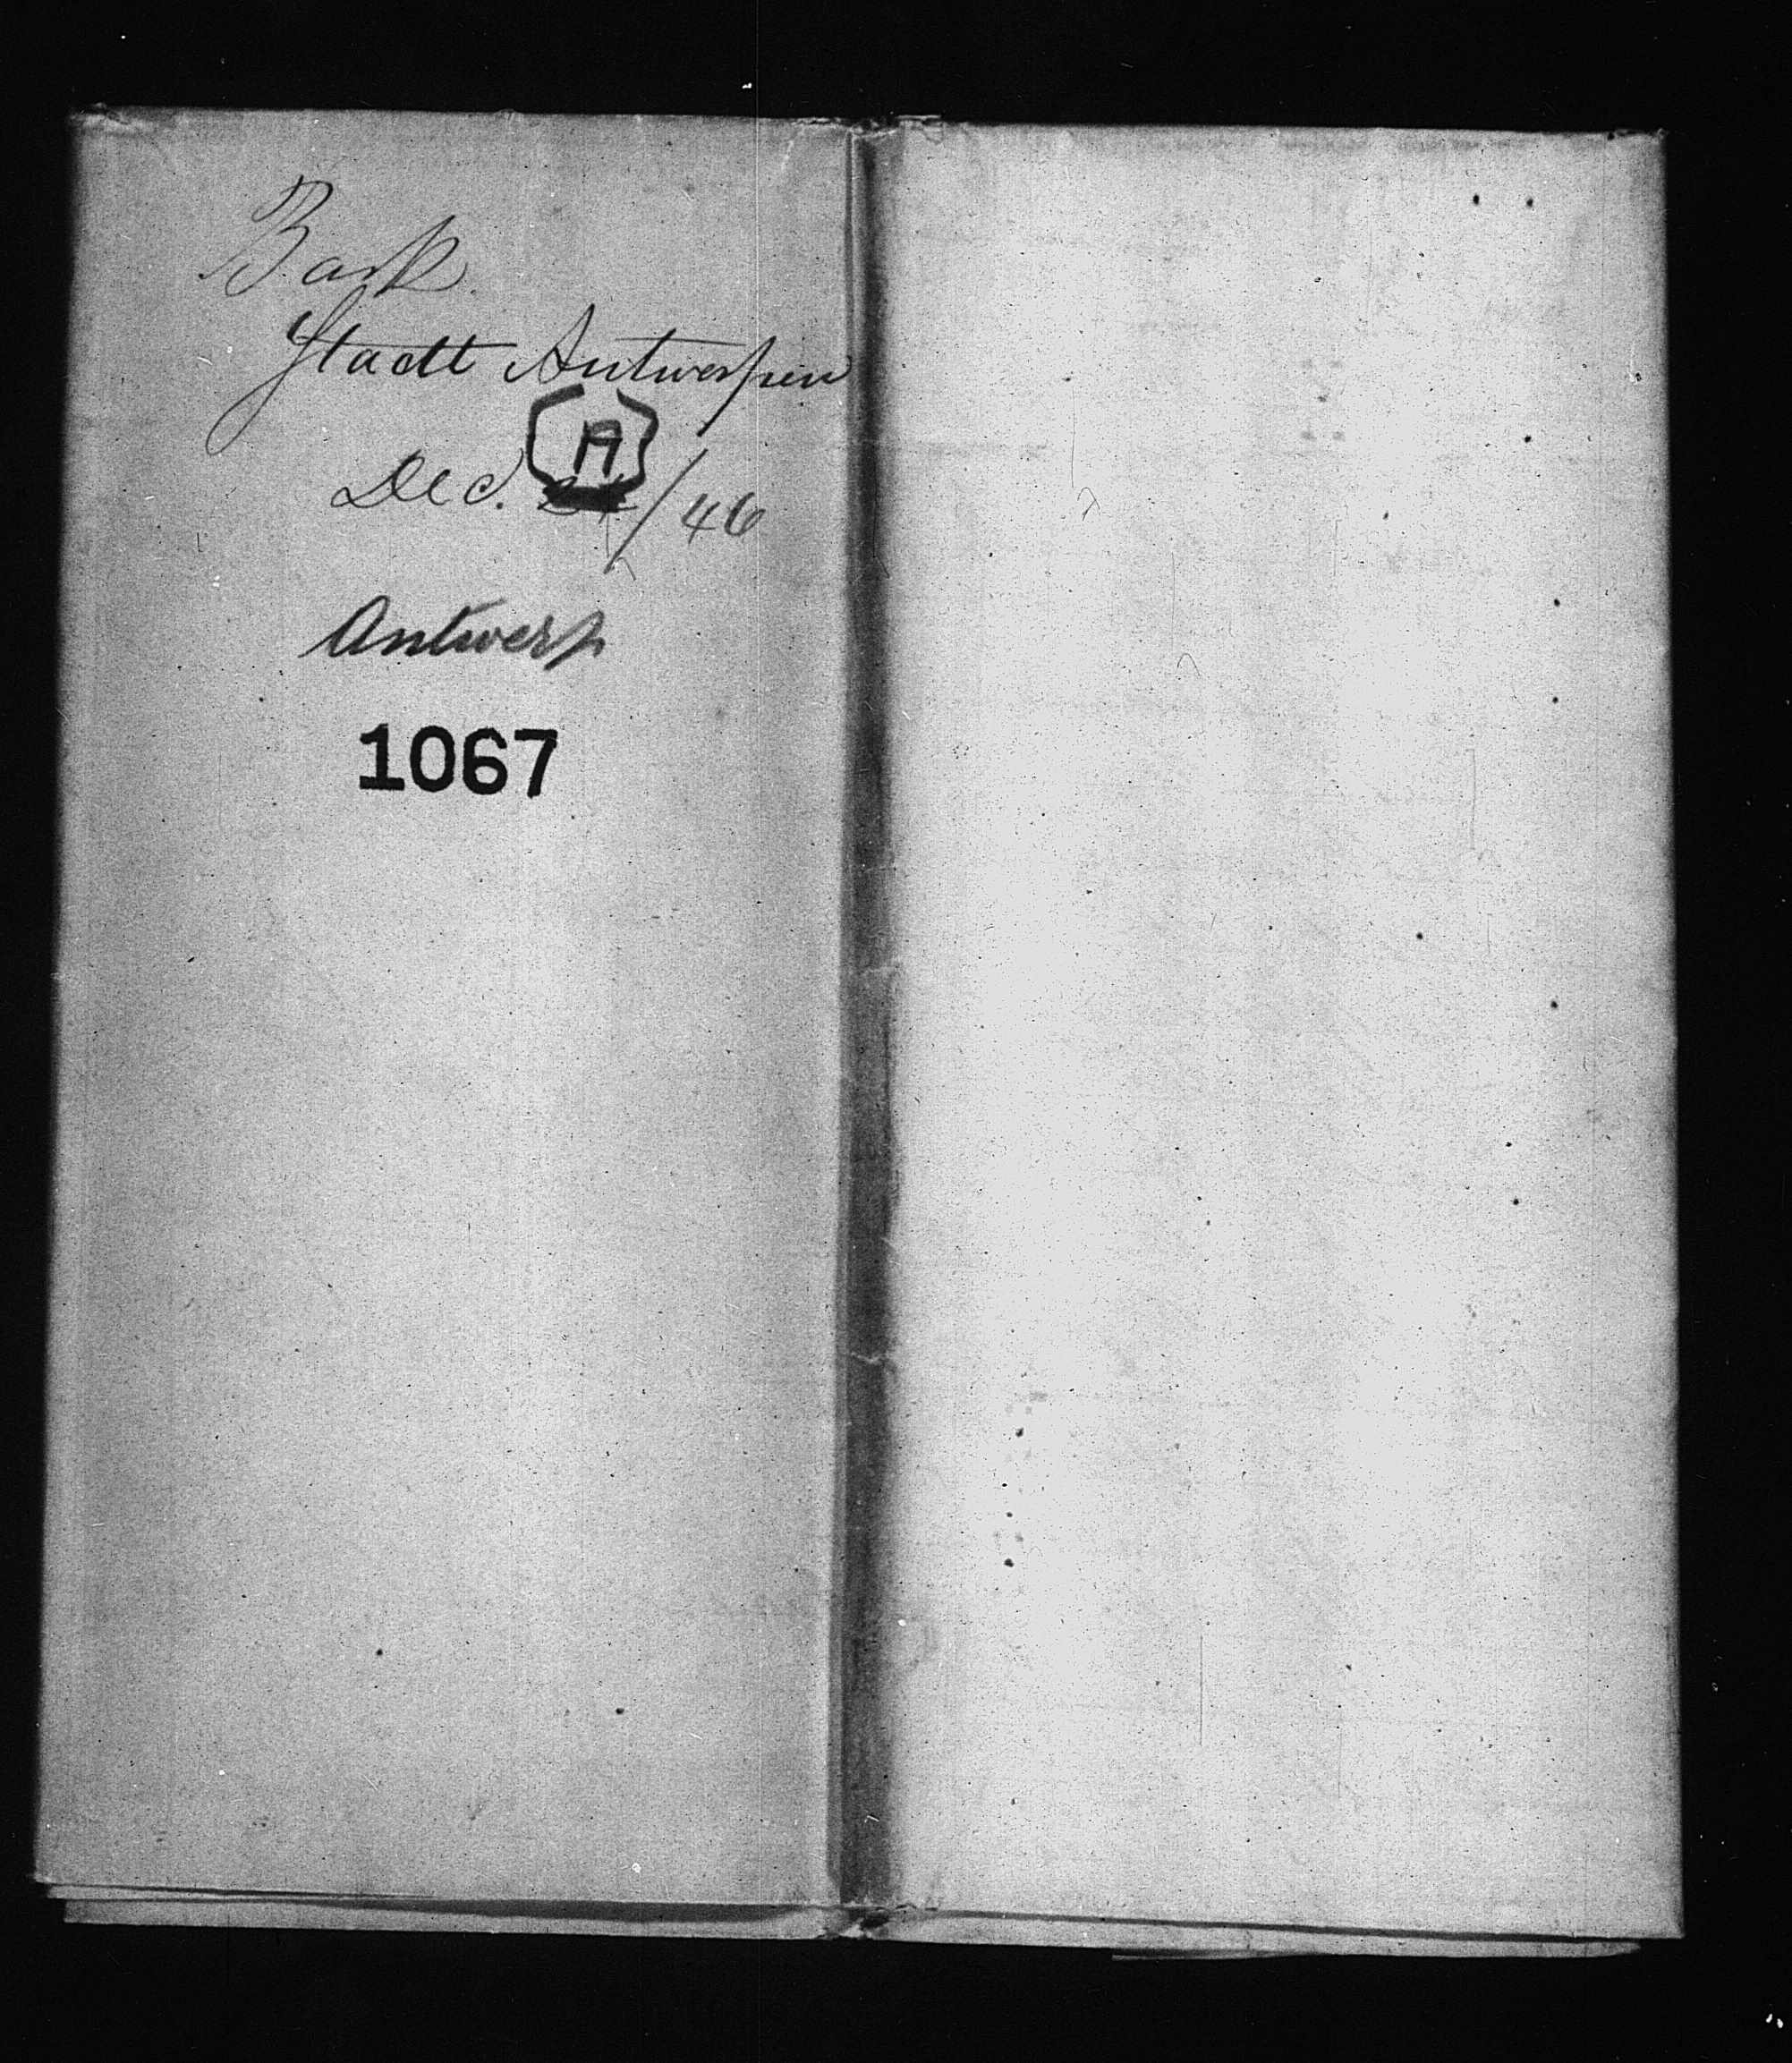 Bark
Stadt Antwerpen
[A]
Dec. /46
Antwerp
1067